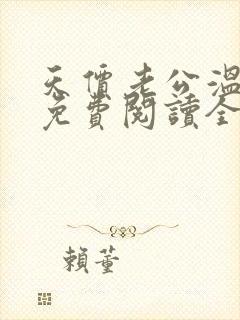 天價老公溫
免費閱讀全
賴董